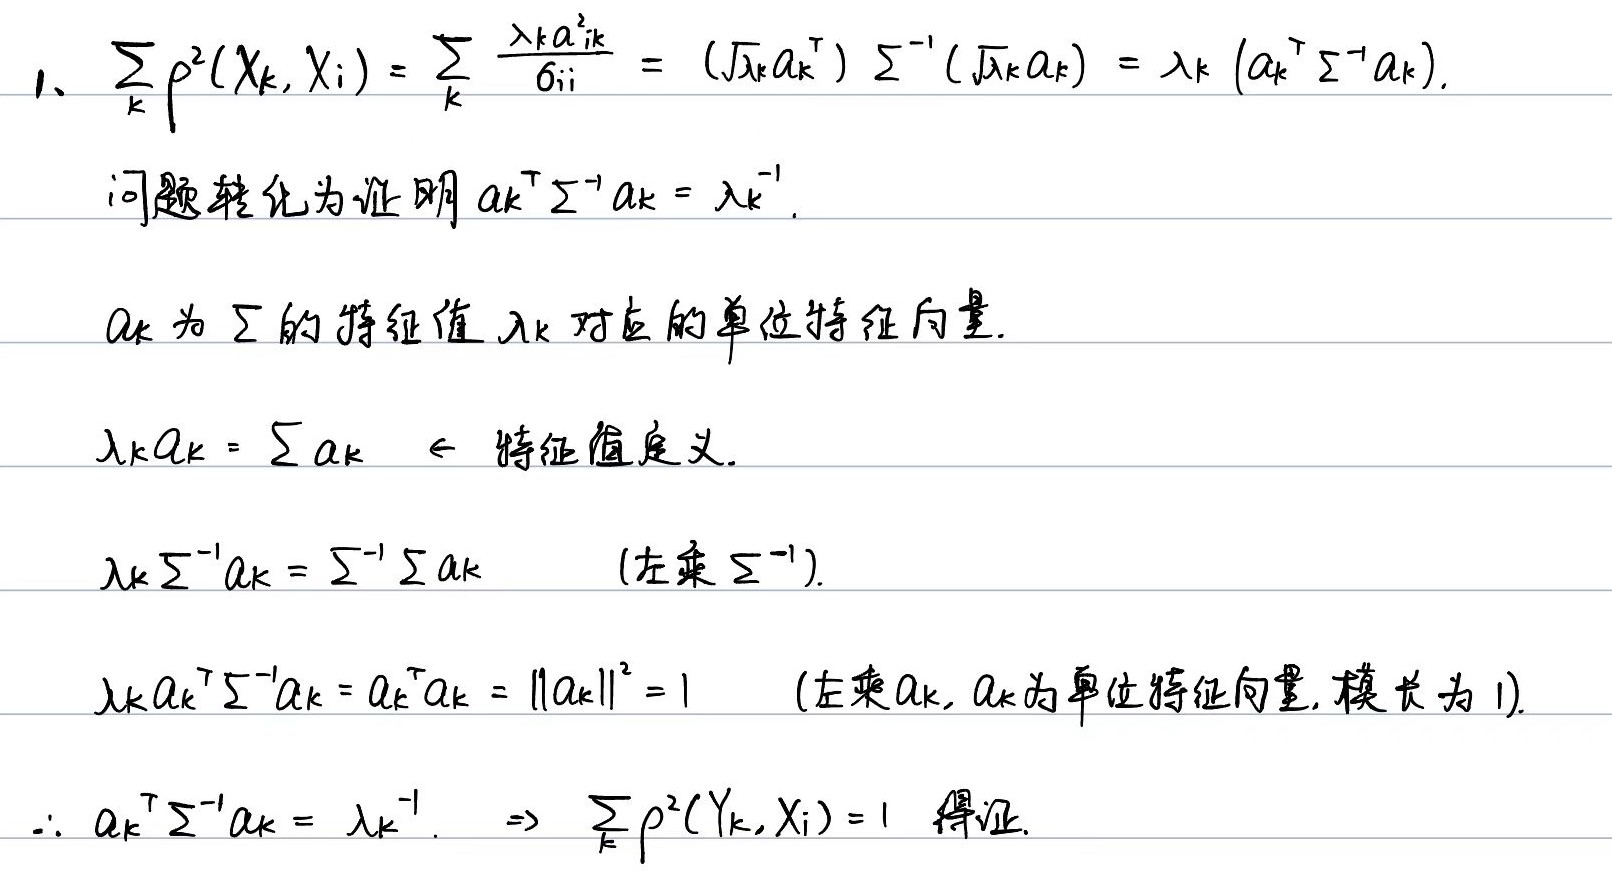 1、 ∑_k ρ²(X_k, X_i) = ∑_k λ_k a²_ik / σ_ii = (√λ_k a_k^T) Σ^{-1} (√λ_k a_k) = λ_k (a_k^T Σ^{-1} a_k).
问题转化为证明 a_k^T Σ^{-1} a_k = λ_k^{-1}.
a_k 为 Σ 的特征值 λ_k 对应的单位特征向量.
λ_k a_k = Σ a_k ← 特征值定义.
λ_k Σ^{-1} a_k = Σ^{-1} Σ a_k (左乘 Σ^{-1}).
λ_k a_k^T Σ^{-1} a_k = a_k^T a_k = ||a_k||² = 1 (左乘a_k, a_k为单位特征向量, 模长为1).
∴ a_k^T Σ^{-1} a_k = λ_k^{-1}. ⇒ ∑_k ρ²(Y_k, X_i) = 1 得证.